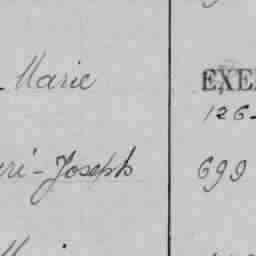 Marie
EXE
126-
ri-Joseph
699